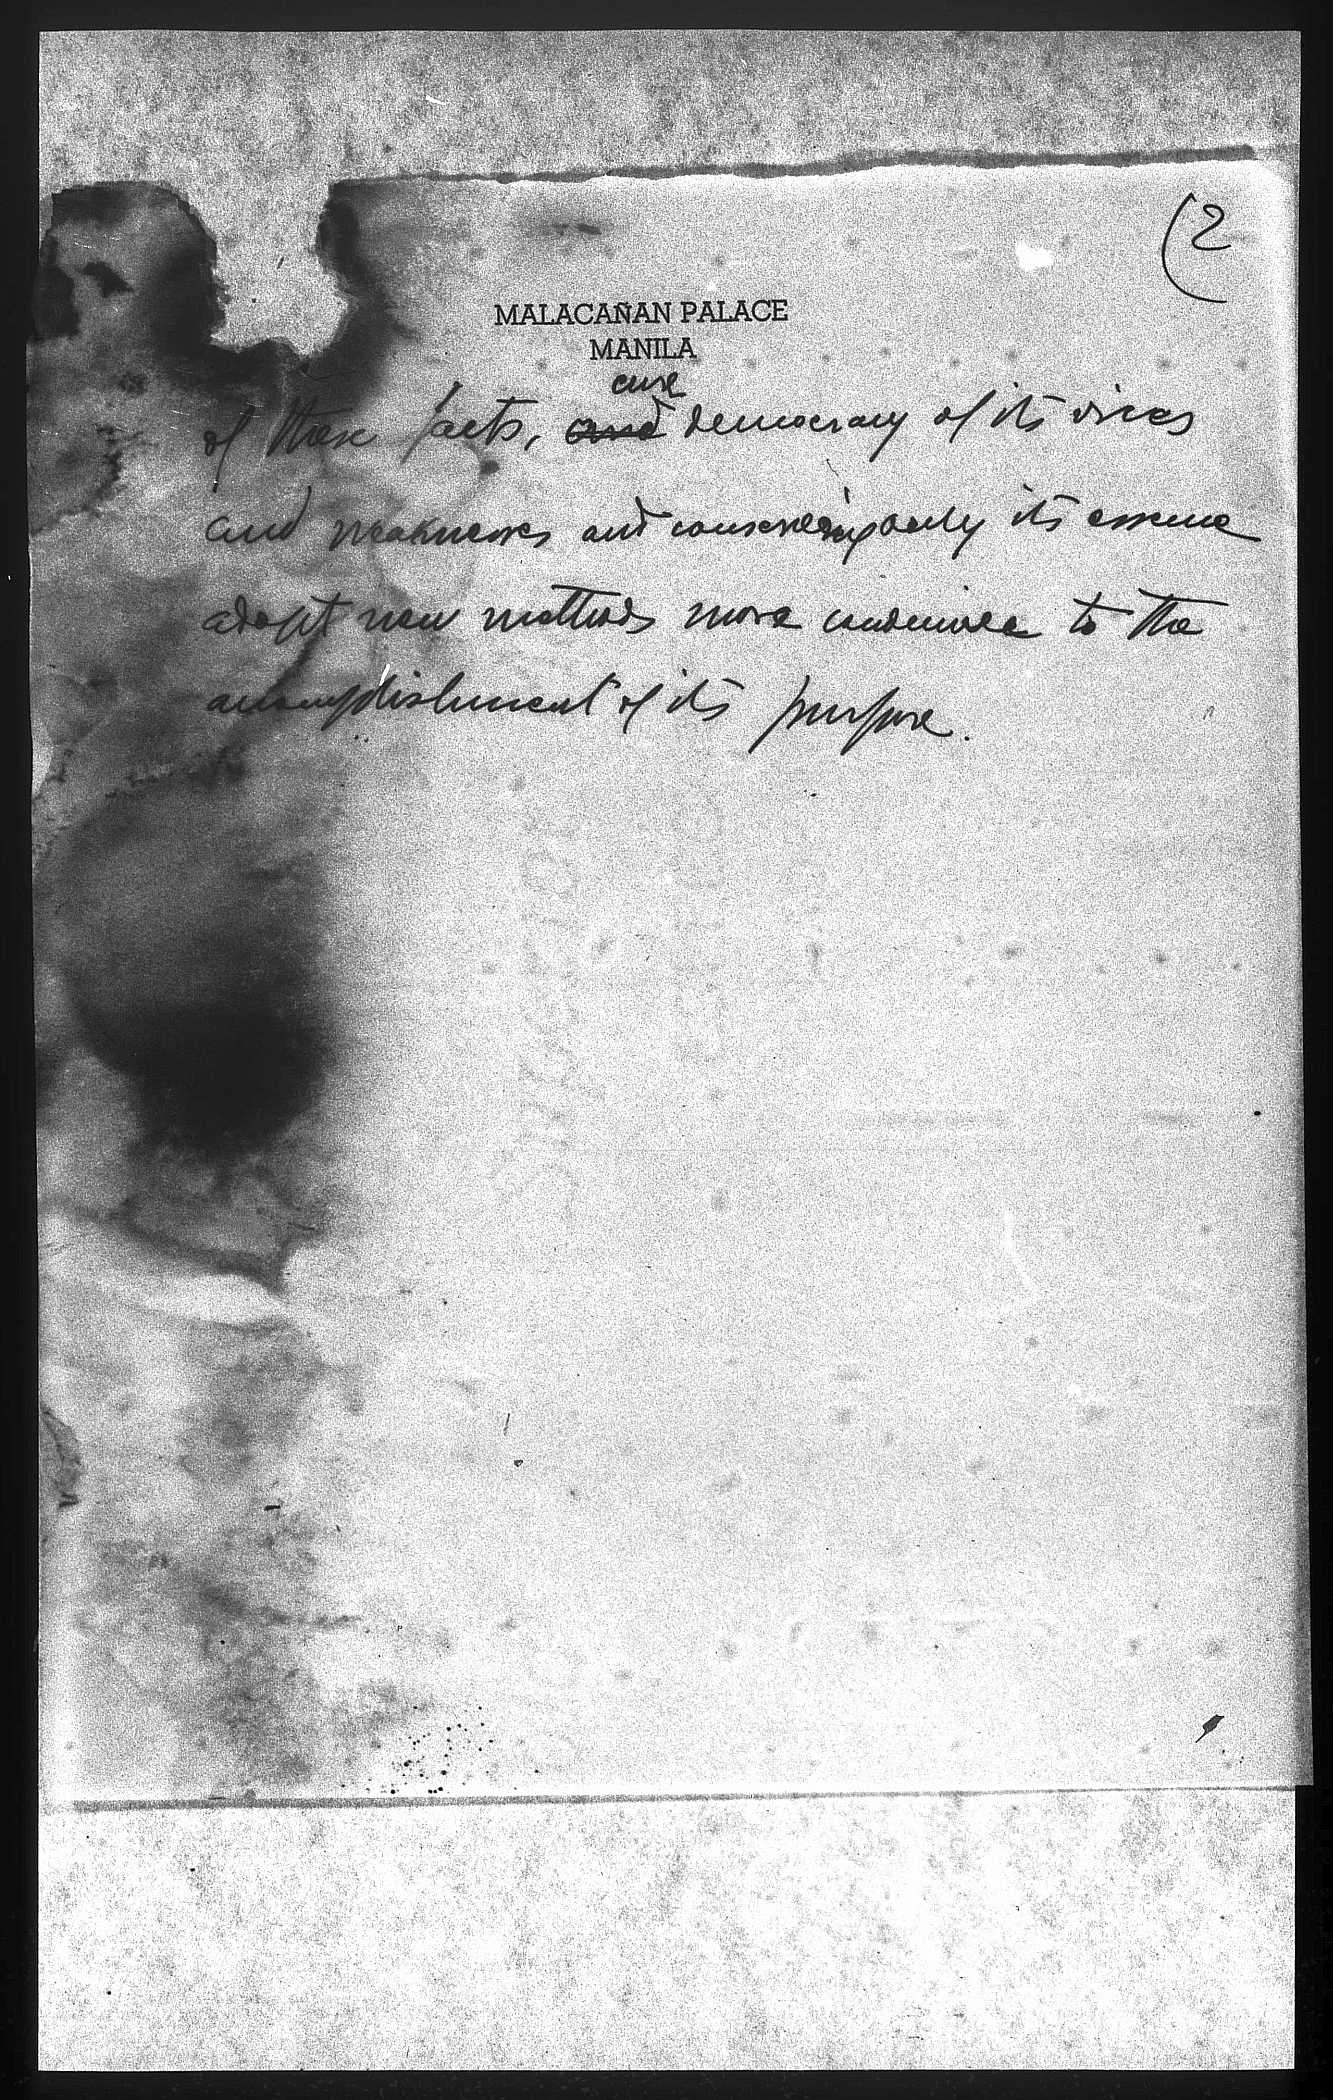 (2
MALACAÑAN PALACE
MANILA
cure
of these facts, and democracy of its vices
and weaknesses and conserving only its essence
adopt new methods more conducive to the
accomplishment of its purpose.